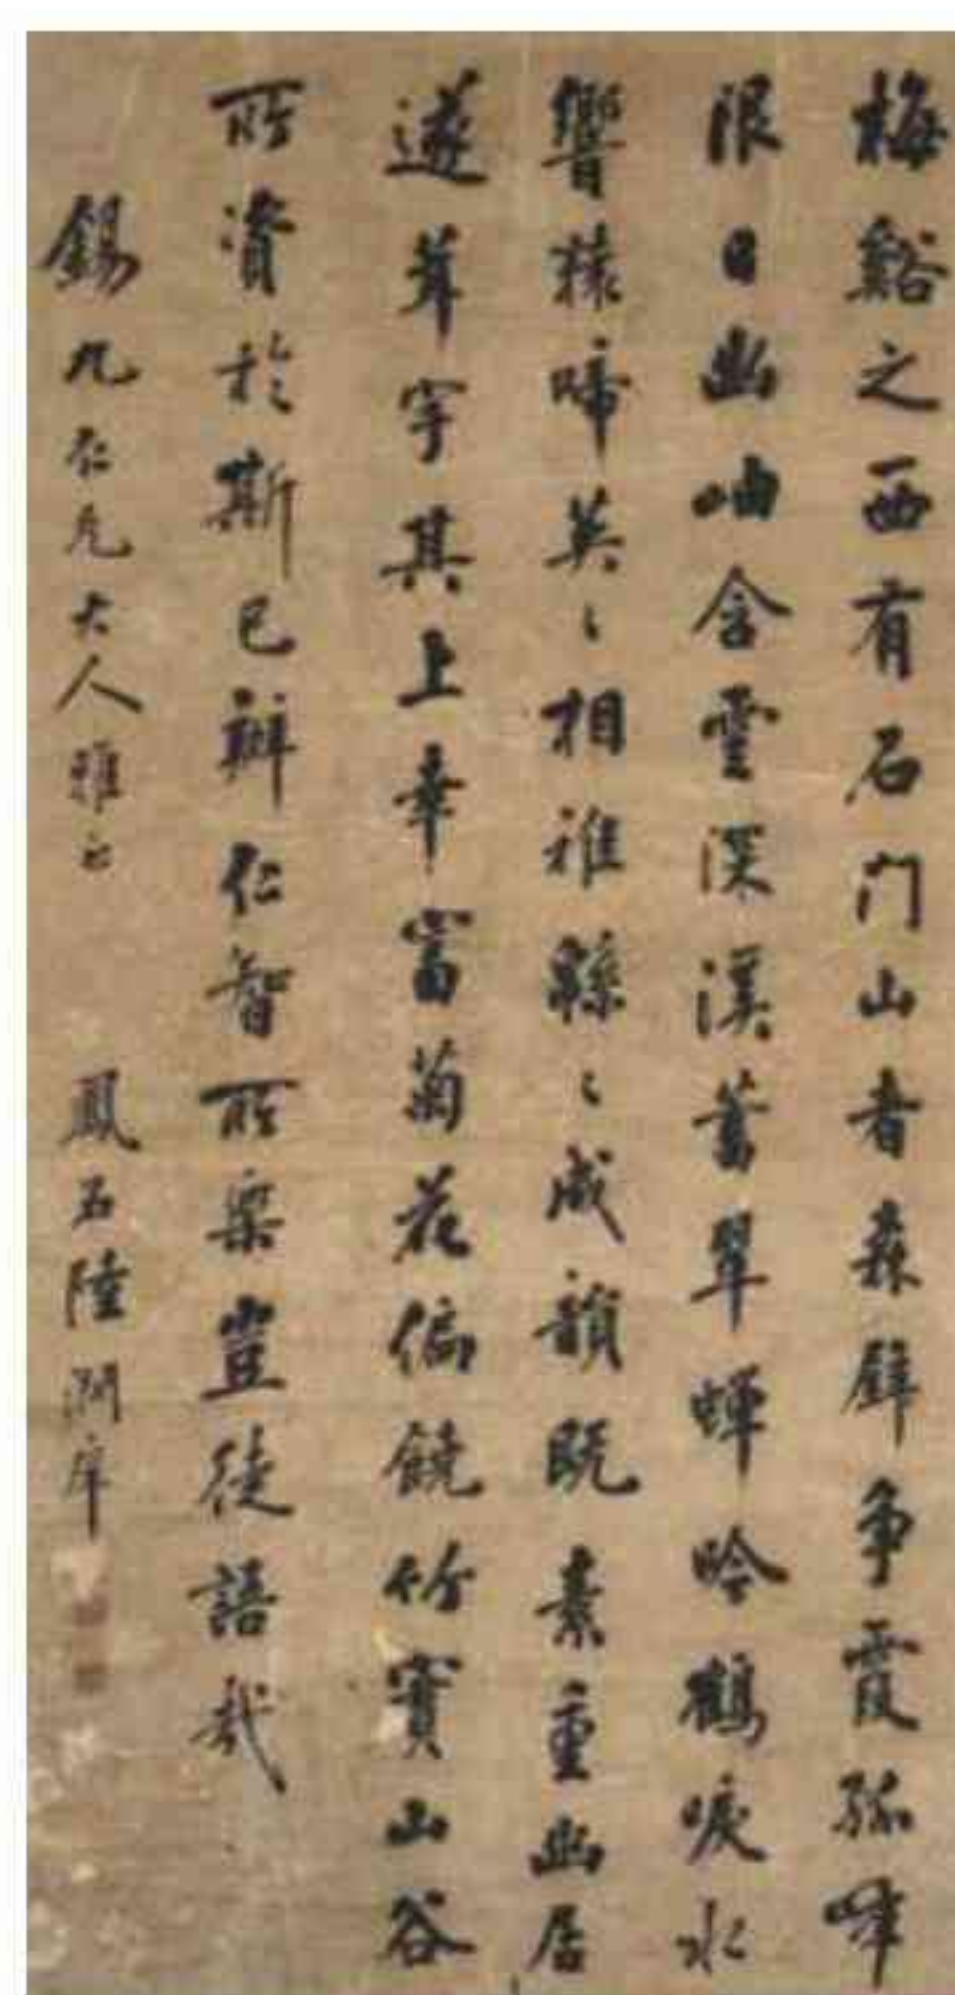 梅谿之西有石门山者森壁争霞孤峰
限日幽岫含雲深溪蓄翠蟬吟鶴唳水
響猿啼英〻相雜緜〻成韻既素重幽居
遂葺宇其上幸富菊花偏饒竹實山谷
所資於斯已辦仁智所樂豈徒語哉
錫九仁兄大人雅正
鳳石陸潤庠